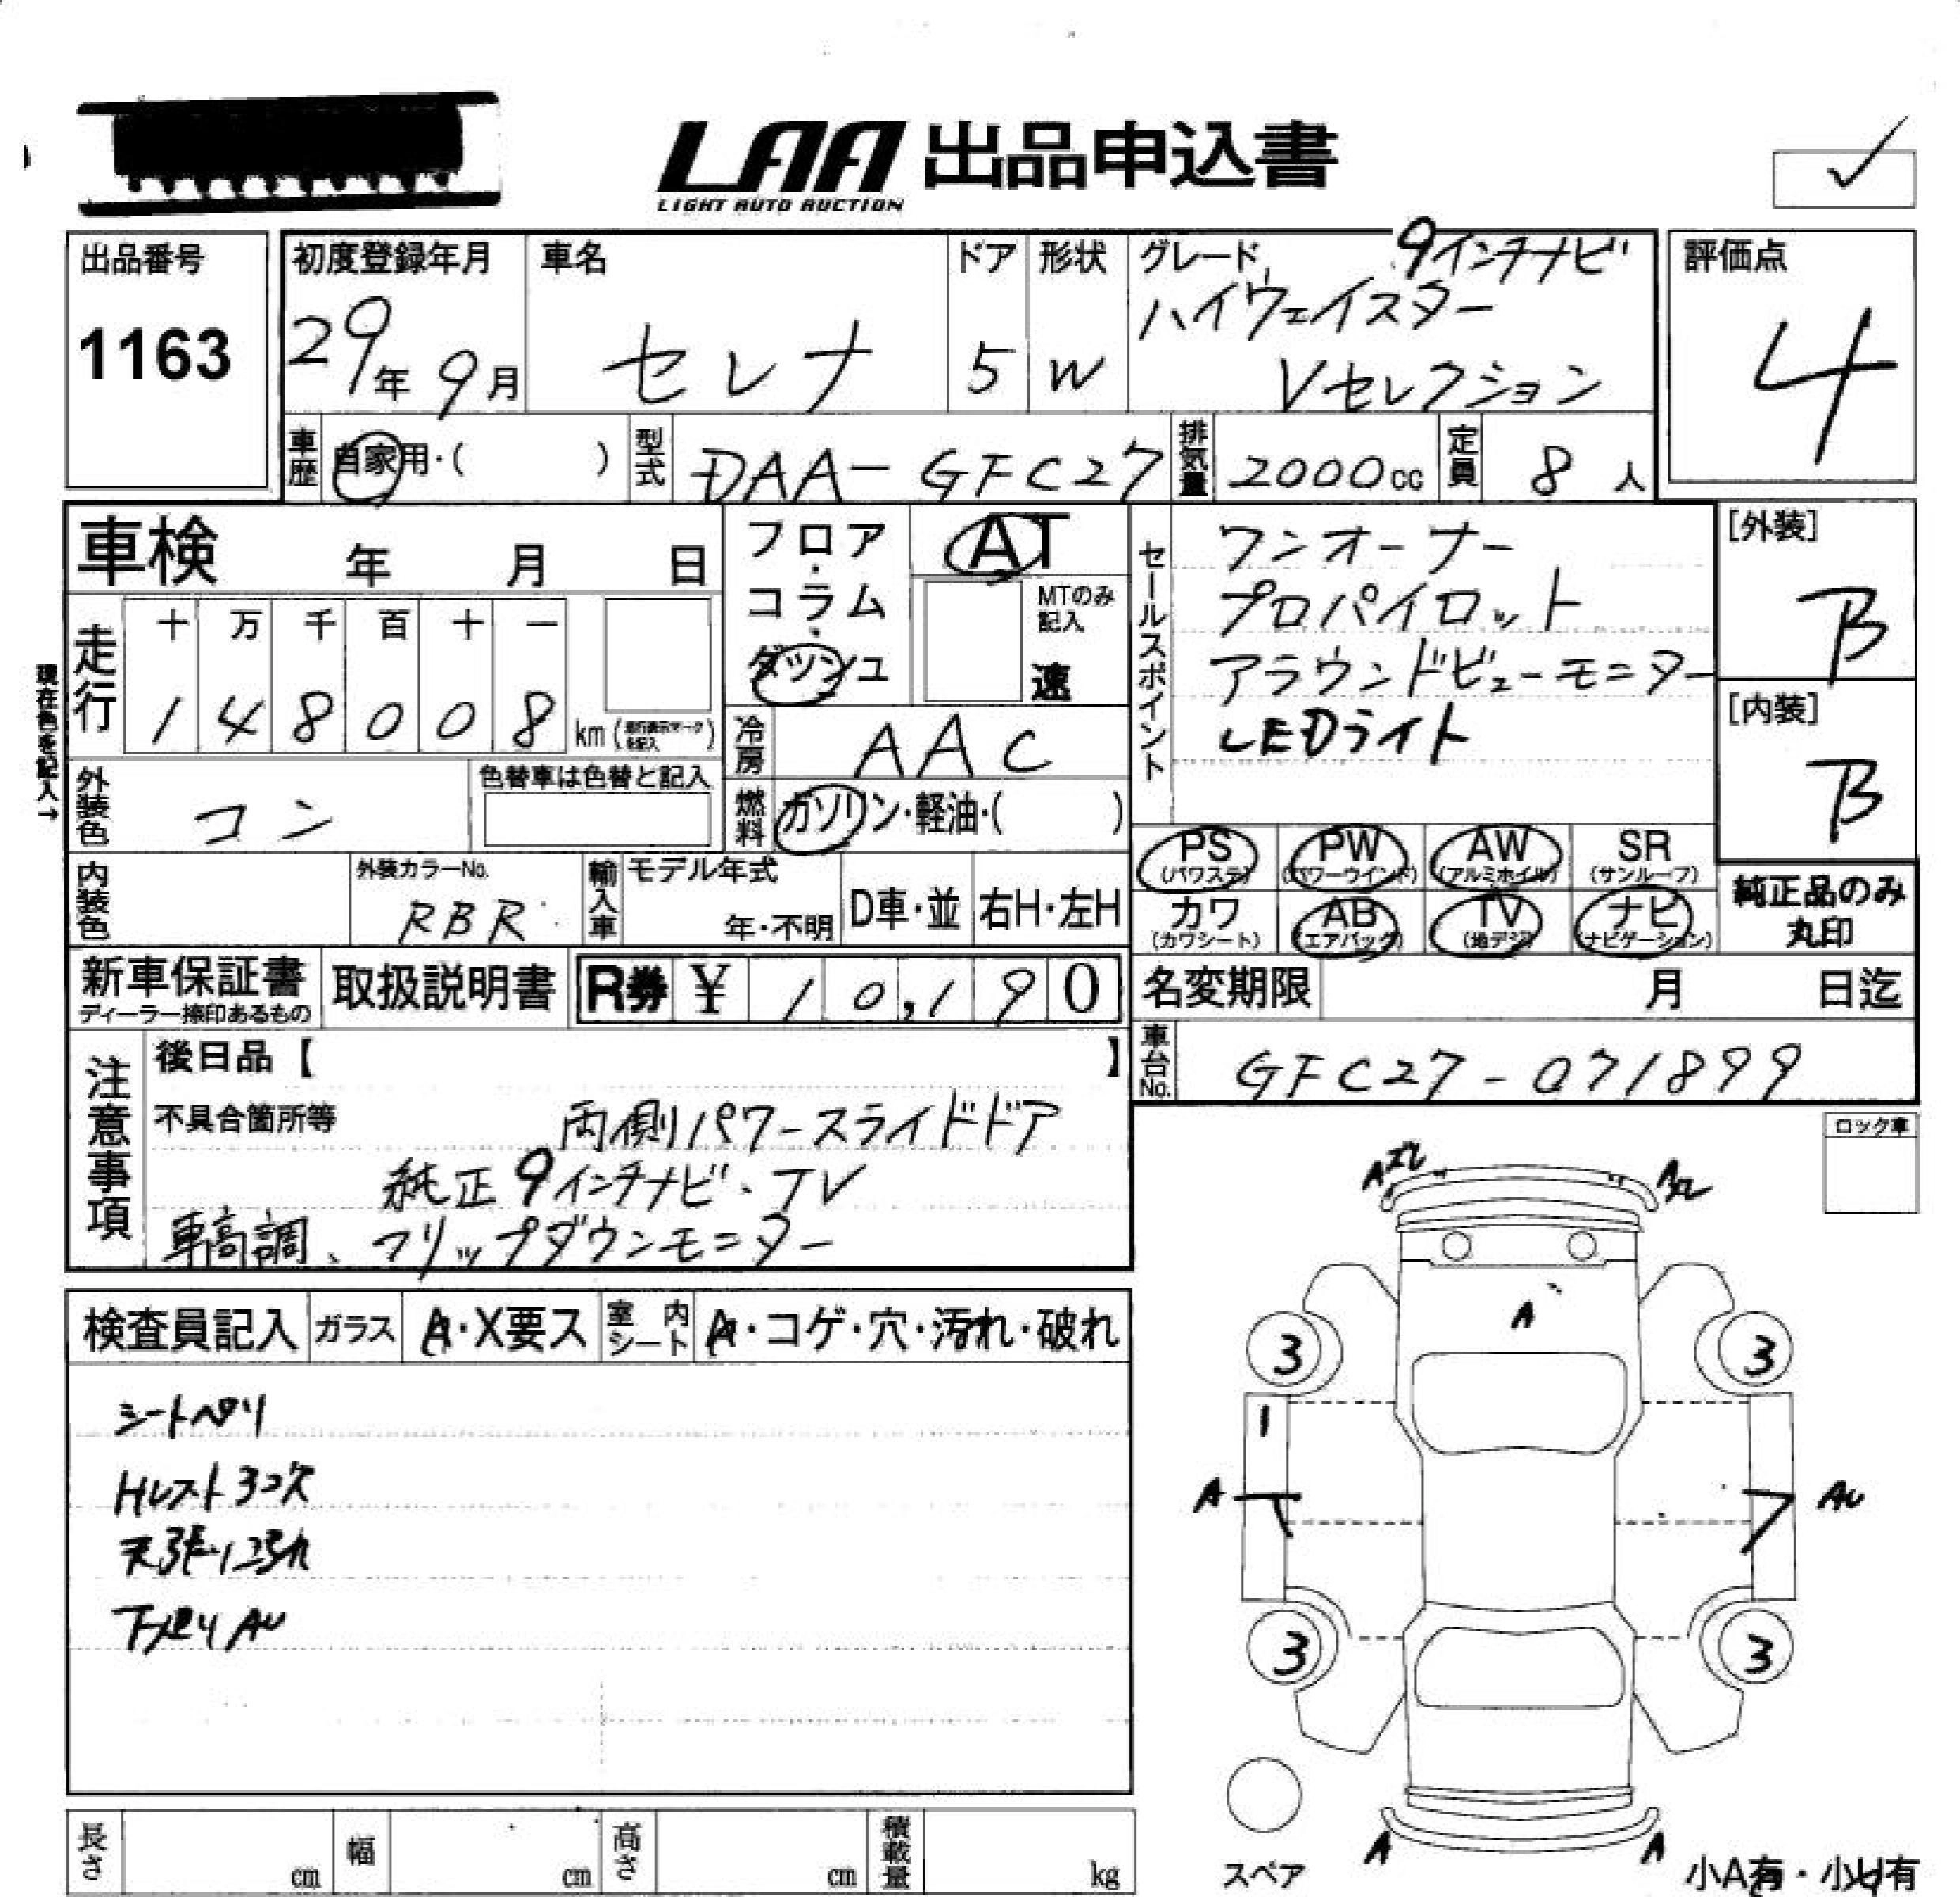 LAA 出品申込書
LIGHT AUTO AUCTION
出品番号
1163
初度登録年月
29年 9月
車名
セレナ
ドア
5
形状
W
グレード
9インチナビ
ハイウェイスター
Vセレクション
評価点
4
車歴 自家用・( )
型式 DAA-GFC27
排気量 2000cc
定員 8人
車検 年 月 日
現在色を記入→
走行
十 万 千 百 十 一
1 4 8 0 0 8 km
フロア・コラム・ダッシュ
AT
MTのみ記入
速
冷房 AAC
燃料 ガソリン・軽油・( )
外装色 コン
色替車は色替と記入
内装色
外装カラーNo.
RBR
輸入車
モデル年式
年・不明
D車・並
右H・左H
セールスポイント
ワンオーナー
プロパイロット
アラウンドビューモニター
LEDライト
[外装]
B
[内装]
B
PS (パワステ)
PW (パワーウインド)
AW (アルミホイル)
SR (サンルーフ)
カワ (カワシート)
AB (エアバッグ)
TV (地デジ)
ナビ (ナビゲーション)
純正品のみ丸印
新車保証書
ディーラー捺印あるもの
取扱説明書
R券 ¥ 10,190
名変期限 月 日迄
車台No. GFC27-071899
注意事項
後日品【 】
不具合箇所等
両側パワースライドドア
純正9インチナビ・TV
車高調、フリップダウンモニター
ロック車
検査員記入
ガラス A・X要ス
室内シート A・コゲ・穴・汚れ・破れ
シートヘタリ
Hレスト3コ欠
天張り汚れ
下廻りAU
A
A
A
3
3
1
A
AU
3
3
A
A
スペア
小A有・小U有
長さ cm
幅 cm
高さ cm
積載量 kg